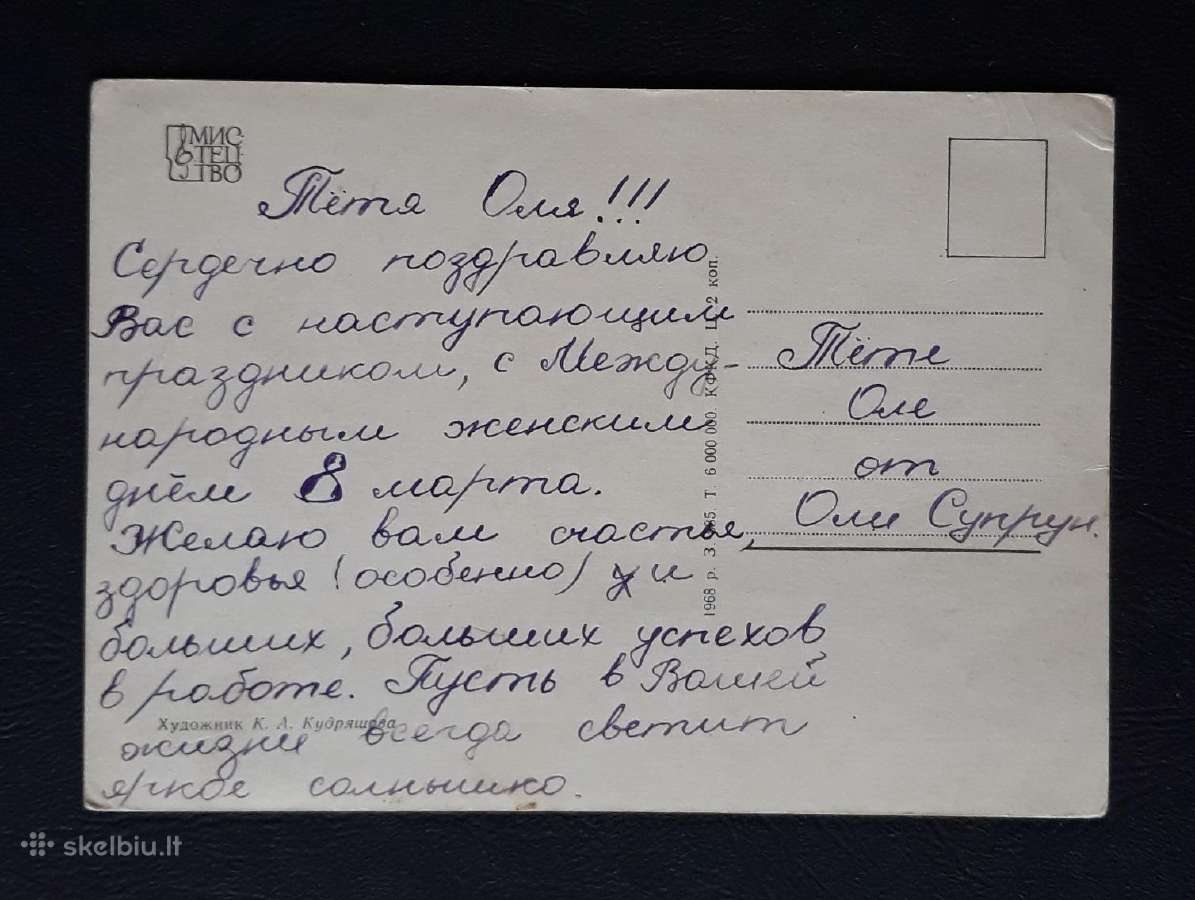 МИС
ТЕЦ
ТВО
Тётя Оля!!!
Сердечно поздравляю
Вас с наступающим
праздником, с Между-
народным женским
днём 8 марта.
Желаю вам счастья,
здоровья (особенно) и
больших, больших успехов
в работе. Пусть в Вашей
жизни всегда светит
яркое солнышко.
Художник К. А. Кудряшова
1968 р. З. Т. 6 000 000. КФКД. Ц. 2 коп.
Тёте
Оле
от
Оли Супрун.
skelbiu.lt